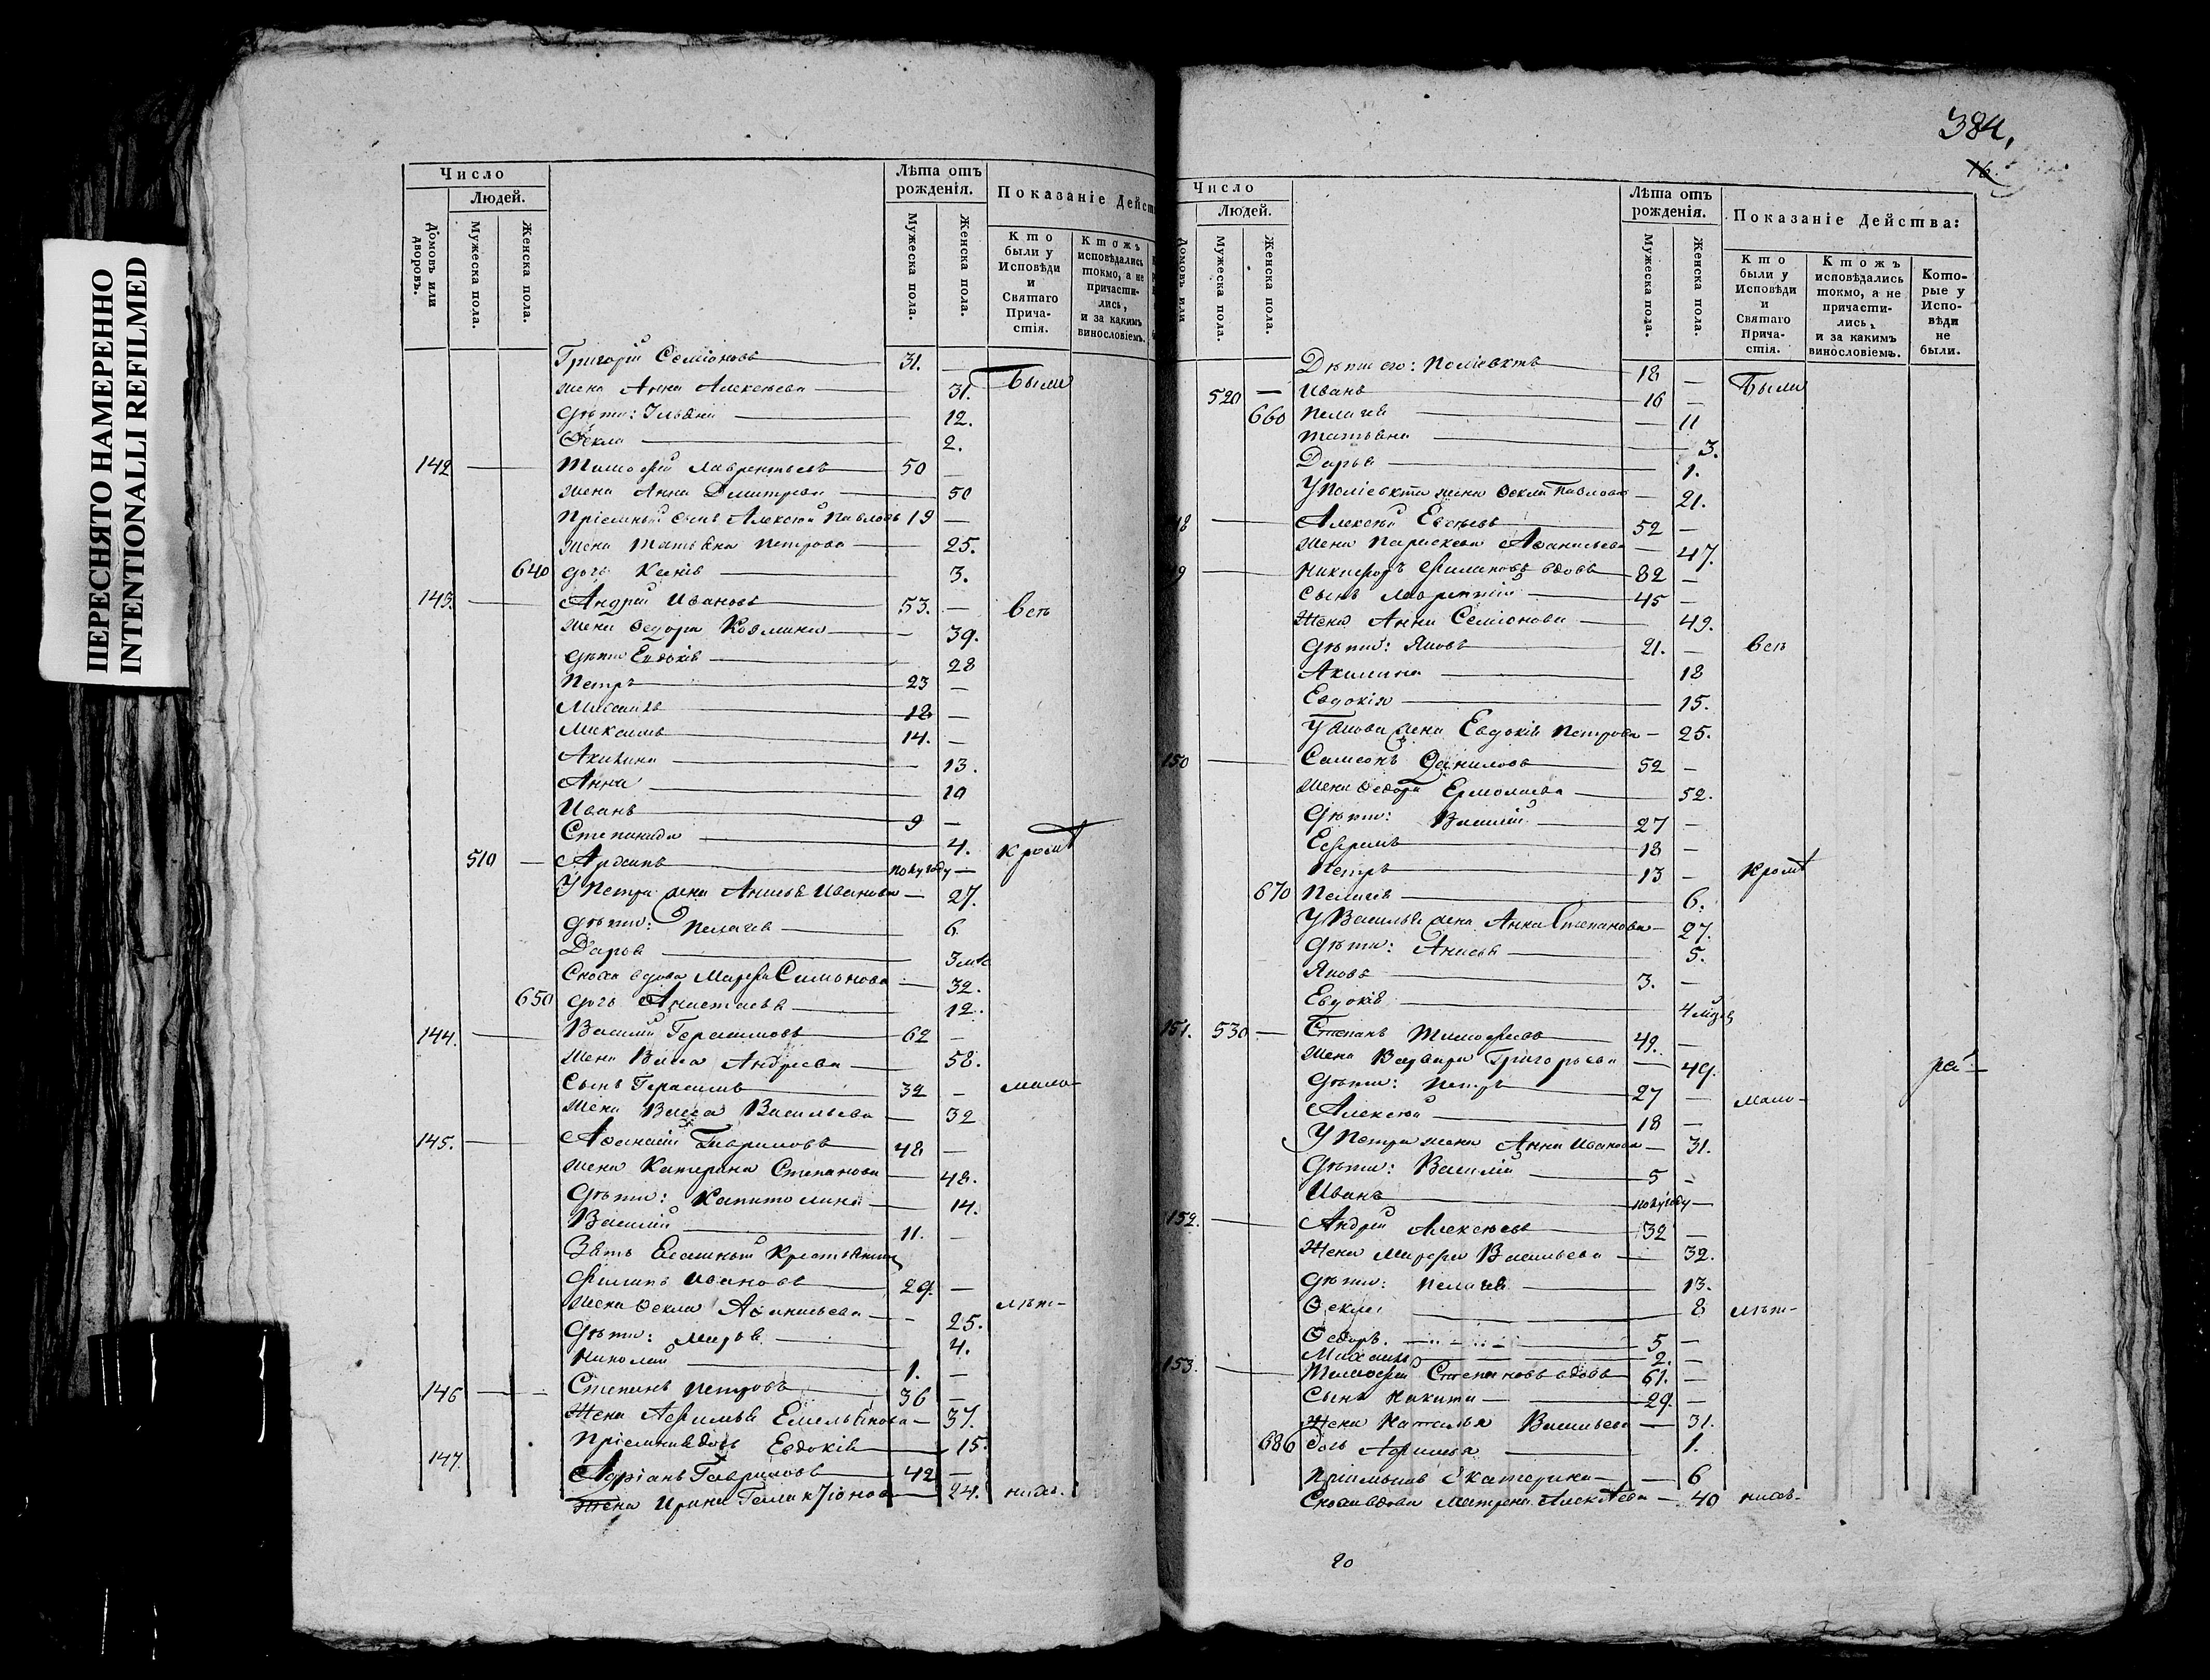 ПЕРЕСНЯТО НАМЕРЕННО
INTENTIONALLI REFILMED
Число
Людей.
Домовъ или дворовъ.
Мужеска пола.
Женска пола.
Лѣта отъ рожденія.
Мужеска пола.
Женска пола.
Показаніе Дейст
Кто были у Исповѣди и Святаго Прича-стія.
Ктожъ исповѣдались токмо, а не причасти-лись, и за какимъ винословіемъ.
Григорій Семіоновъ 31. —
жена Анна Алексѣева 31. Были
дѣти: Ульяна 12.
Ѳекла 2.
142 Тимофей Лаврентьевъ 50 —
жена Анна Дмитрева 50
Пріемный сынъ Алексѣй Павловъ 19 —
жена Татьяна Петрова 25.
640 дочь Ксенія 3.
143. Андрей Ивановъ 53. — Всѣ
жена Ѳедора Козмина — 39.
дѣти Евдокія 28
Петръ 23 —
Михаилъ 18 —
Максимъ 14. —
Акилина 13.
Анна 10
Иванъ 9 —
Степанида 4. Кромѣ
510 — Архипъ полугоду —
У Петра жена Анисья Иванова — 27.
дѣти: Пелагея 6
Дарья
Сноха вдова Марфа Симонова — 32.
650 дочь Анастасья 12.
144. Василій Герасимовъ 62 —
жена Васса Андреева 58.
Сынъ Герасимъ 32 — мало-
жена Васса Васильева — 32
145. Аѳанасій Гавриловъ 48 —
жена Катерина Степанова 48.
дѣти: Капитолина 14.
Василій 11. —
Зять
Филипъ Ивановъ 29. —
жена Ѳекла Аѳанасьева — 25. лѣт-
дѣти: Марья 4.
Николай 1. —
146 Степанъ Петровъ 36 —
Жена Афимья Емельянова — 37.
Пріемная дочь Евдокія 15.
147 Адріанъ Гавриловъ 42 —
Жена Ирина 24. нихъ.
384,
16.
Число
Людей.
Домовъ или
Мужеска пола.
Женска пола.
Лѣта отъ рожденія.
Мужеска пола.
Женска пола.
Показаніе Действа:
Кто были у Исповѣди и Святаго Прича-стія.
Ктожъ исповѣдались токмо, а не причасти-лись, и за какимъ винословіемъ.
Кото-рые у Испо-вѣди не были.
Дѣти его: Поліевктъ 18 —
520 — Иванъ 16 — Были
660 Пелагея — 11
Татьяна 3.
Дарья 1.
У Поліевкта жена Ѳекла Павлова — 21.
Алексѣй Евсѣевъ 52 —
жена Параскева Аѳанасьева — 47.
Никифоръ Филиповъ вдовъ 82 —
Сынъ Лаврентій 45 —
Жена Анна Семіонова 49.
дѣти: Яковъ 21. — Всѣ
Акилина 18
Евдокія 15.
У Якова жена Евдокія Петрова — 25.
150 Самсонъ Даниловъ 52 —
жена Ѳедора Ермолаева 52.
дѣти: Василій 27 —
Ефремъ 18 —
Петръ 13 — Кромѣ
670 Пелагея 6.
У Василья жена Анна Степанова — 27.
дѣти: Анисья 5.
Яковъ 3. —
Евдокія
151. 530 — Степанъ Тимофеевъ 49. —
жена Варвара Григорьева — 49. ра-
дѣти: Петръ 27 — мало-
Алексѣй 18 —
У Петра жена Анна Иванова — 31.
дѣти: Василій 5 —
Иванъ полугоду —
152. Андрей Алексѣевъ 32 —
Жена Марфа Васильева 32.
дѣти: Пелагея 13.
Ѳекла 8 лѣт-
Ѳедоръ. 5 —
Михаилъ 2. —
153. Тимофей Степановъ вдовъ 61. —
Сынъ Никита 29. —
Жена Наталья Васильева — 31.
686 дочь Афимья 1.
Екатерина — 6
Сноха вдова Матрена Алексѣева — 40 нихъ-
20